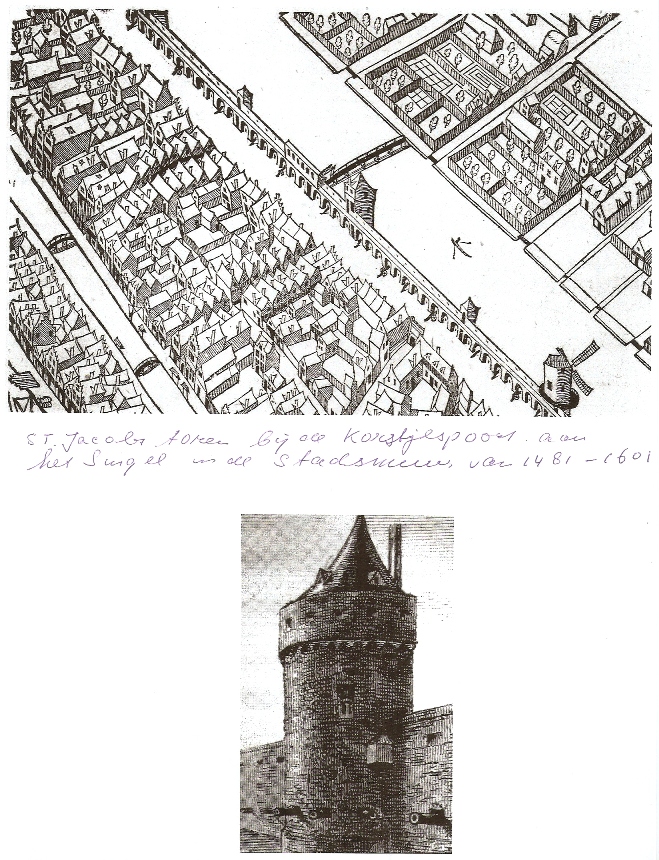 ST. Jacobs toren bij de Korsjespoort. aan
het Singel in de Stadsmuur, van 1481 – 1601